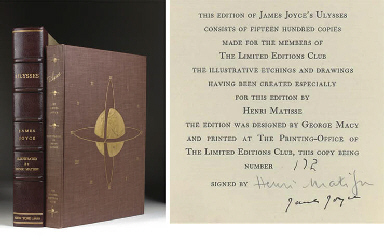 ULYSSES
JAMES
JOYCE
ILLUSTRATED
BY
HENRI MATISSE
NEW YORK 1935
THIS EDITION OF JAMES JOYCE'S ULYSSES
CONSISTS OF FIFTEEN HUNDRED COPIES
MADE FOR THE MEMBERS OF
THE LIMITED EDITIONS CLUB
THE ILLUSTRATIVE ETCHINGS AND DRAWINGS
HAVING BEEN CREATED ESPECIALLY
FOR THIS EDITION BY
HENRI MATISSE
THE EDITION WAS DESIGNED BY GEORGE MACY
AND PRINTED AT THE PRINTING-OFFICE OF
THE LIMITED EDITIONS CLUB, THIS COPY BEING
NUMBER 172
SIGNED BY Henri Matisse
James Joyce